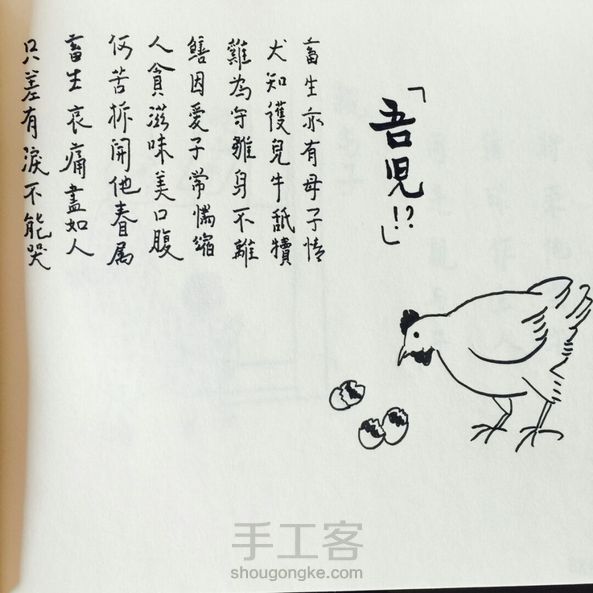 「吾児!?」
畜生亦有母子情
犬知護兒牛舐犢
雞為守雛身不離
鱔因愛子常惴縮
人貪滋味美口腹
何苦拆開他眷属
畜生哀痛盡如人
只差有淚不能哭
手工客
shougongke.com